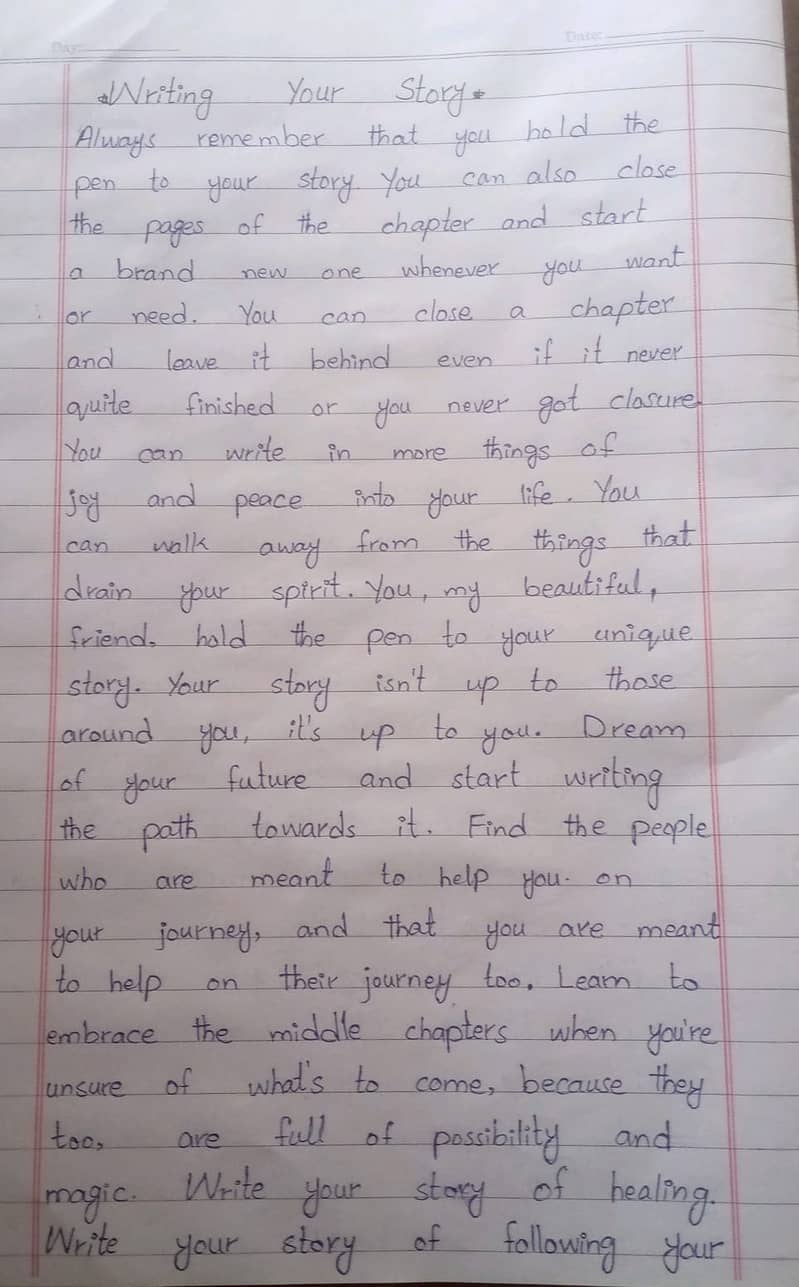 Day:
Date:
Writing Your Story
Always remember that you hold the
pen to your story. You can also close
the pages of the chapter and start
a brand new one whenever you want
or need. You can close a chapter
and leave it behind even if it never
quite finished or you never got closure.
You can write in more things of
joy and peace into your life. You
can walk away from the things that
drain your spirit. You, my beautiful,
friend, hold the pen to your unique
story. Your story isn't up to those
around you, it's up to you. Dream
of your future and start writing
the path towards it. Find the people
who are meant to help you. on
your journey, and that you are meant
to help on their journey too. Learn to
embrace the middle chapters when you're
unsure of what's to come, because they
too, are full of possibility and
magic. Write your story of healing.
Write your story of following your